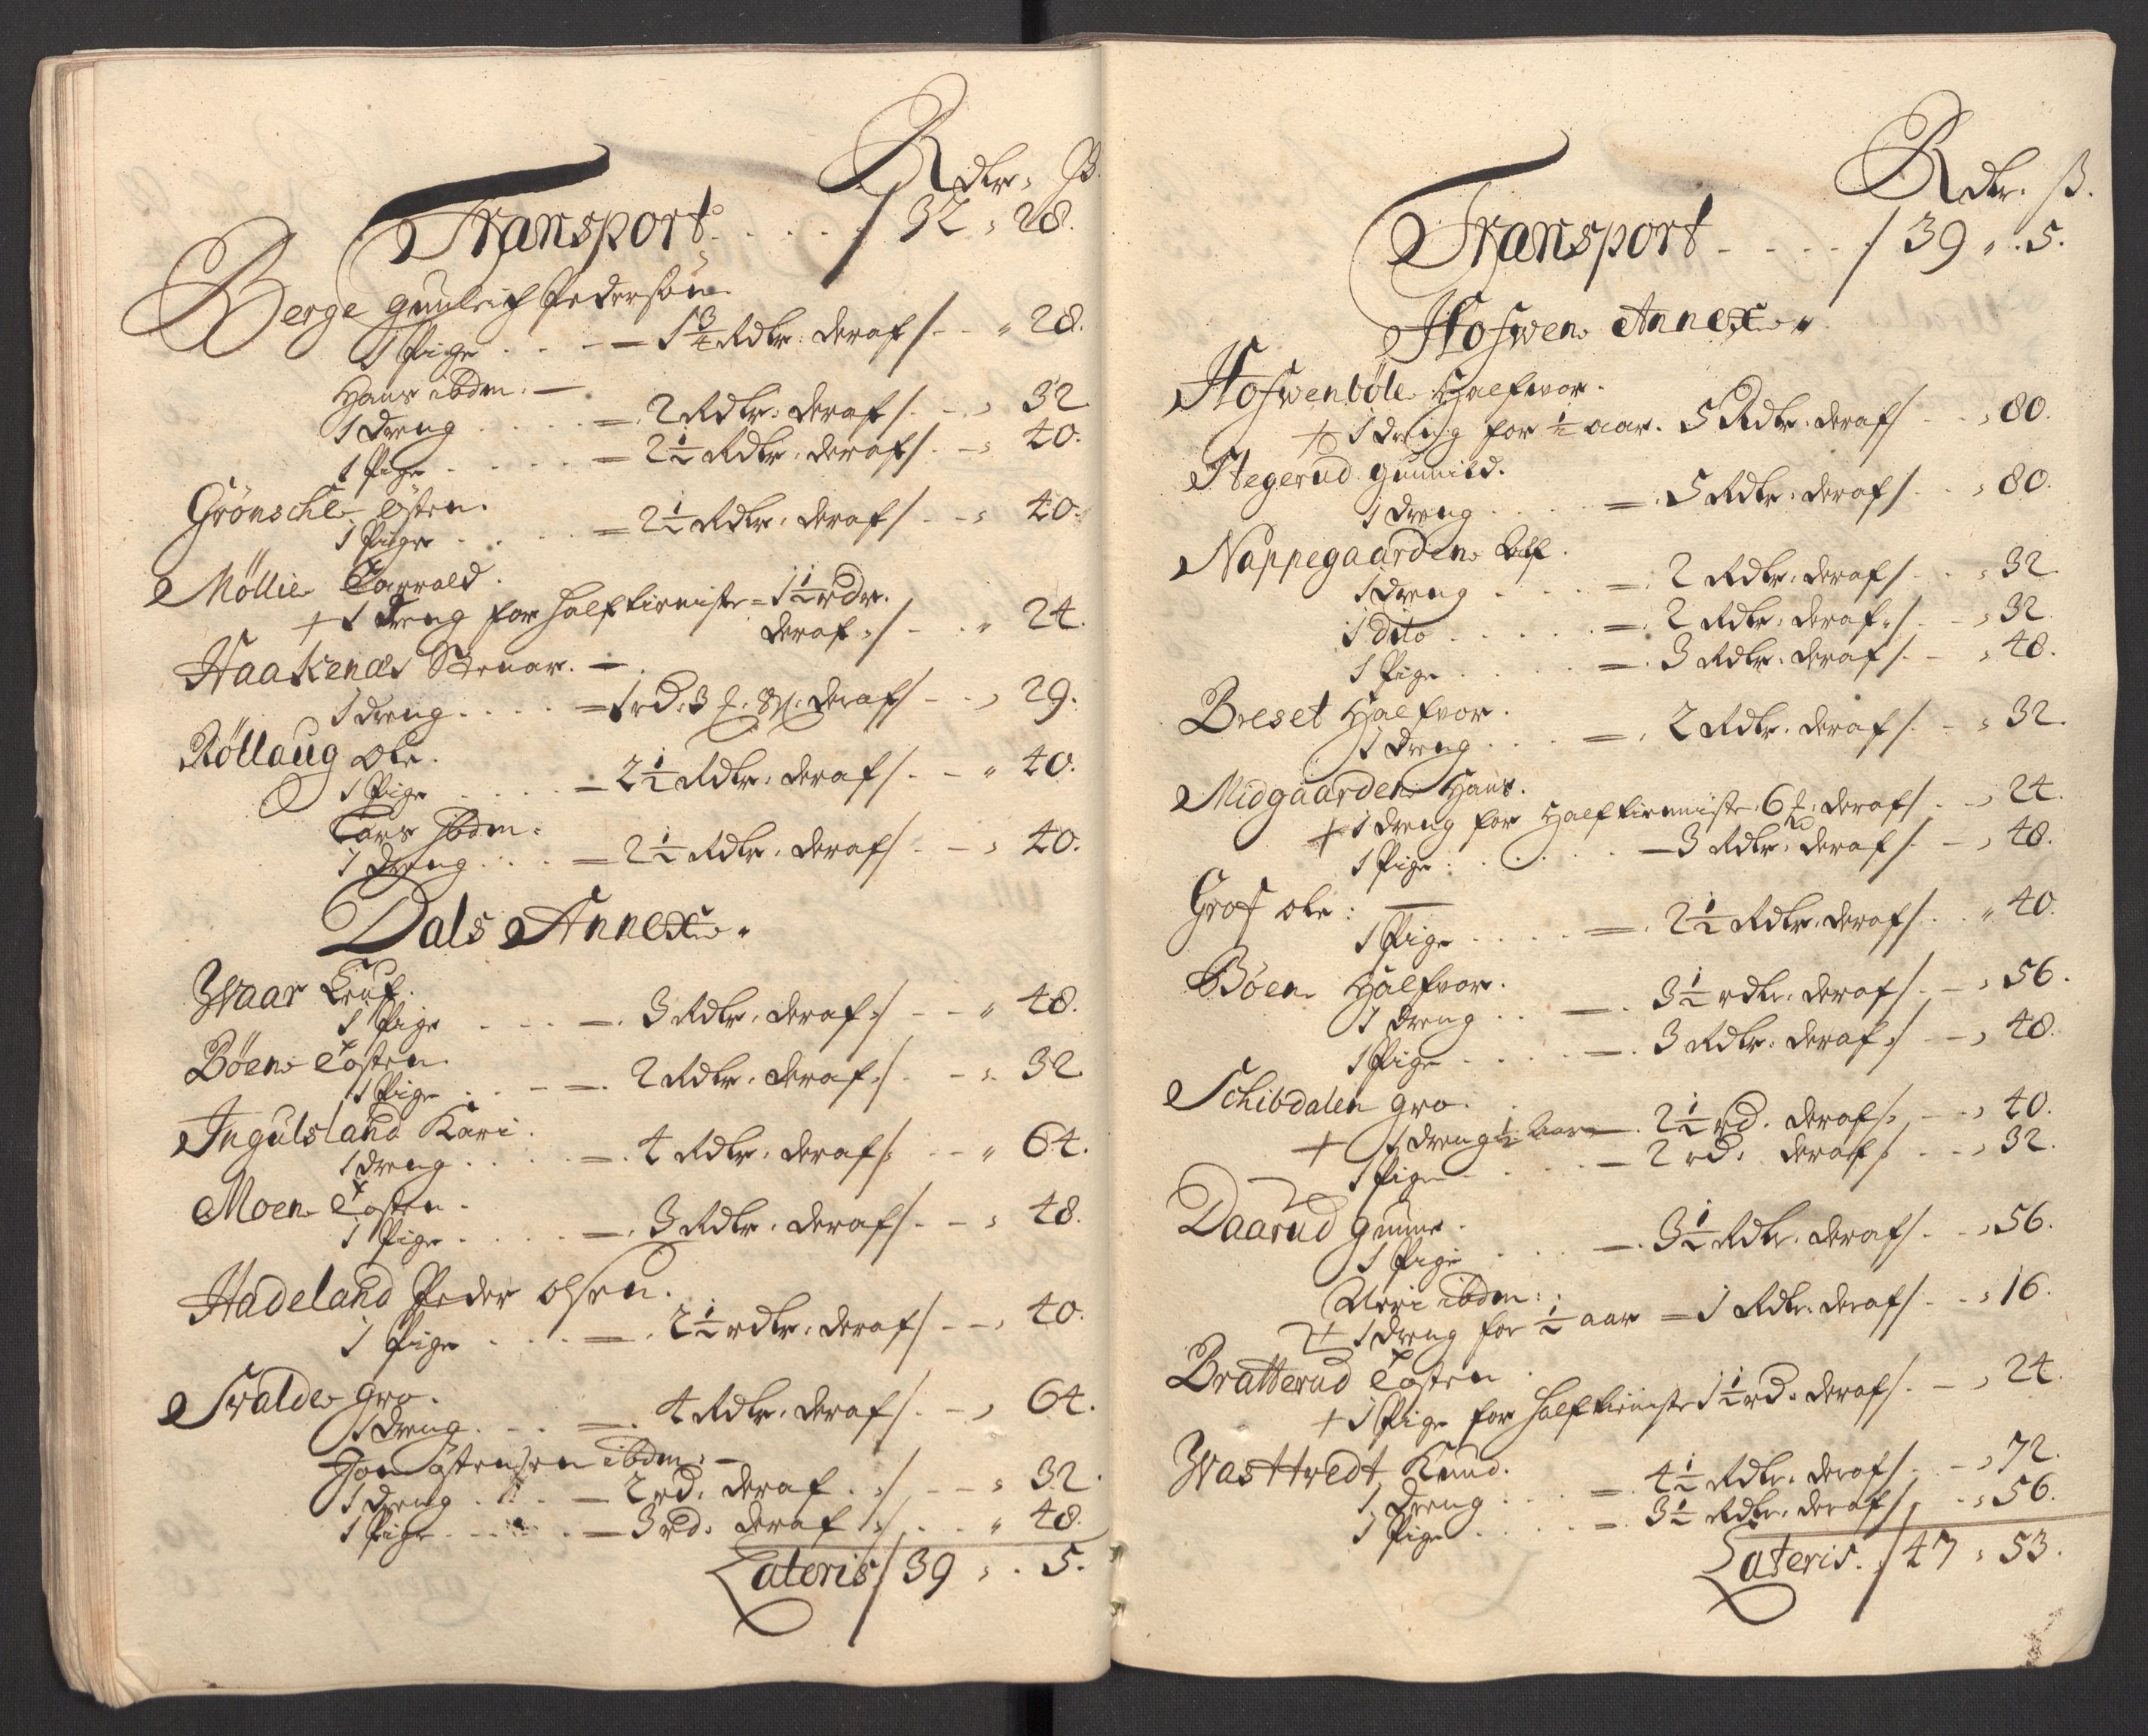 Rdlr. ß.
Transport . . . . . / 32 , 28.
Berge Gunleich Pedersøn
1 Pige . . . — 1 3/4 Rdlr. deraf /. - „ 28.
Hans ibdm. —
1 dreng . . . . = 2 Rdlr. deraf /. - , 32
1 Pige . . . . = 2 1/2 Rdlr. deraf /. - , 40.
Grønschl Østen.
1 Pige . . . = 2 1/2 Rdlr. deraf /. - , 40.
Møllie Tarrald.
+ 1 dreng for halftieniste = 1 1/2 rdr.
deraf /. - . „ 24.
Haakenæs Stenar. —
1 dreng . . . . = 1 rd. 3 deraf /. - , 29.
Røllaug Ole.
1 Pige . . . . = 2 1/2 Rdlr. deraf /. - „ 40.
Lars Ibdm.
1 dreng . . . = 2 1/2 Rdlr. deraf /. - , 40.
Dals Annex.
Waar
1 Pige . . . —. 3 Rdlr. deraf / - - „ 48.
Bøen Tosten.
1 Pige . . . - =. 2 Rdlr. deraf /. - , 32.
Ingulsland Kari.
1 dreng . . . . =. 4 Rdlr. deraf / . - „ 64.
Moen Tosten.
1 Pige . . . . =. 3 Rdlr. deraf /. - , 48.
Hadeland Peder Olsen.
1 Pige . . . - =. 2 1/2 rdlr. deraf / - - , 40.
Svalde Gro.
1 dreng . . . =. 4 Rdlr. deraf /. - , 64.
Jon Østensen ibdm. —
1 dreng . . . — 2 rd. deraf . / - - , 32.
1 Pige . . . . — 3 rd. deraf / . . „ 48.
Lateris / 39 , . 5.
Rdlr. ß.
Transport - - - - . / 39 „ . 5.
Hofwen Annex.
Hofwenbøle Halfvor.
+ 1 dreng for 1/2 aar. 5 Rdlr. deraf / - - , 80.
Stegerud Gunnild.
1 dreng . . . =. 5 Rdlr. deraf / . . , 80.
Nappegaarden
1 dreng . . . =. 2 Rdlr. deraf / . . , 32.
1 dito . . . . =. 2 Rdlr. deraf / . - , 32.
1 Pige . . . . =. 3 Rdlr. deraf / . - , 48.
Breset Halfvor.
1 dreng . . . =. 2 Rdlr. deraf / . - , 32.
Midgaarden Hans.
+ 1 dreng for Halftieniste. 6 deraf / . - , 24.
1 Pige . . . . — 3 Rdlr. deraf / . - , 48.
Grof Ole: —
1 Pige . . . . =. 2 1/2 Rdlr. deraf / . . „ 40.
Bøen Halfvor.
1 dreng . . . —. 3 1/2 rdlr. deraf / . - , 56.
1 Pige . . . . =. 3 Rdlr. deraf / . - , 48.
Schibdalen Gro.
+ 1 dreng 1/2 Aar —. 2 1/2 rd. deraf / . - , 40.
1 Pige - . . . — 2 rd. deraf / . - , 32.
Daarud Gunne.
1 Pige . . . —. 3 1/2 Rdlr. deraf / . - , 56.
ibdm:
+ 1 dreng for 1/2 aar = 1 Rdlr. deraf / . - , 16.
Bratterud Tosten.
+ 1 Pige for halftieniste 1 1/2 rd. deraf / . - , 24.
Wasttvedt Knud.
1 Dreng . . . =. 4 1/2 Rdlr. deraf / . - , 72.
1 Pige . . . . =. 3 1/2 Rdlr. deraf / . . , 56.
Lateris. / 47 , 53.